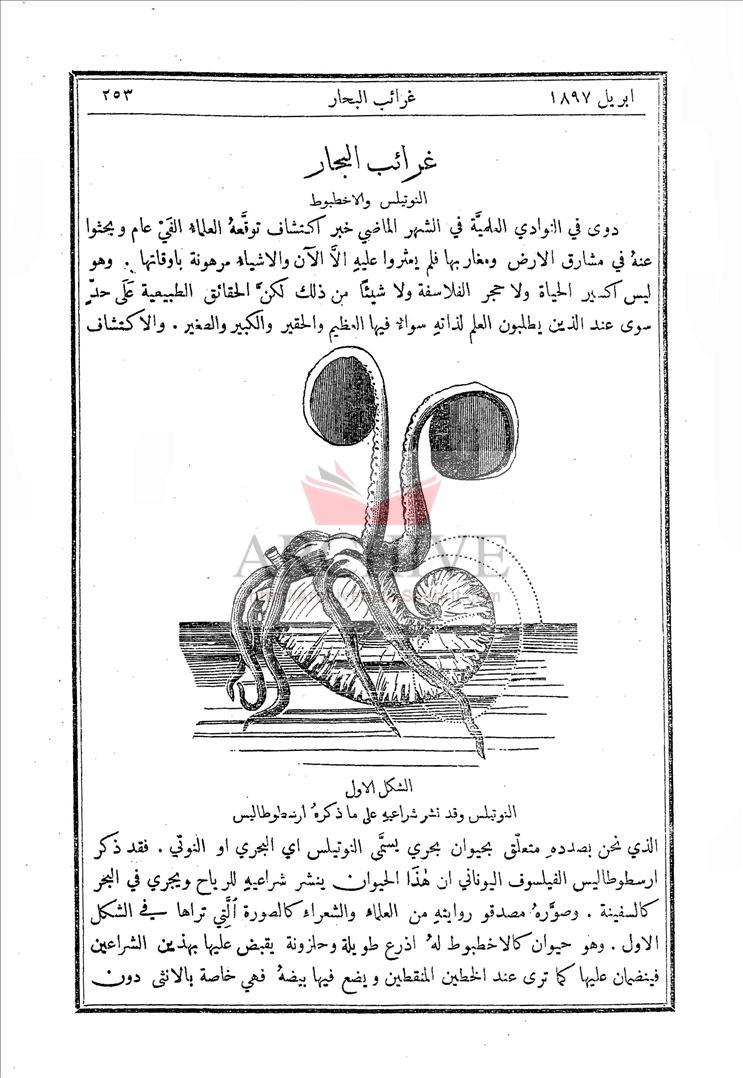 ابريل ١٨٩٧ غرائب البحار ٢٥٣
غرائب البحار
النوتيلس والاخطبوط
دوى في النوادي العلميَّة في الشهر الماضي خبر اكتشاف توقَّعهُ العلماءُ الفَيْ عام وبحثوا
عنهُ في مشارق الارض ومغاربها فلم يعثروا عليهِ الاَّ الآن والاشياءُ مرهونة باوقاتها . وهو
ليس اكسير الحياة ولا حجر الفلاسفة ولا شيئًا من ذلك لكنَّ الحقائق الطبيعية عَلَى حدٍّ
سوى عند الذين يطلبون العلم لذاتهِ سواءٌ فيها العظيم والحقير والكبير والصغير . والاكتشاف
ARCHIVE
الشكل الاول
النوتيلس وقد نشر شراعيهِ على ما ذكرهُ ارسطوطاليس
الذي نحن بصددهِ متعلّق بحيوان بحري يسمَّى النوتيلس اي البحري او النوتي . فقد ذكر
ارسطوطاليس الفيلسوف اليوناني ان هٰذا الحيوان ينشر شراعيهِ للرياح ويجري في البحر
كالسفينة . وصوَّرهُ مصدقو روايتهِ من العلماء والشعراء كالصورة ٱلَّتِي تراها في الشكل
الاول . وهو حيوان كالاخطبوط لهُ اذرع طويلة وحلزونة يقبض عليها بهذين الشراعين
فينضمان عليها كما ترى عند الخطين المنقطين ويضع فيها بيضهُ فهي خاصة بالانثى دون